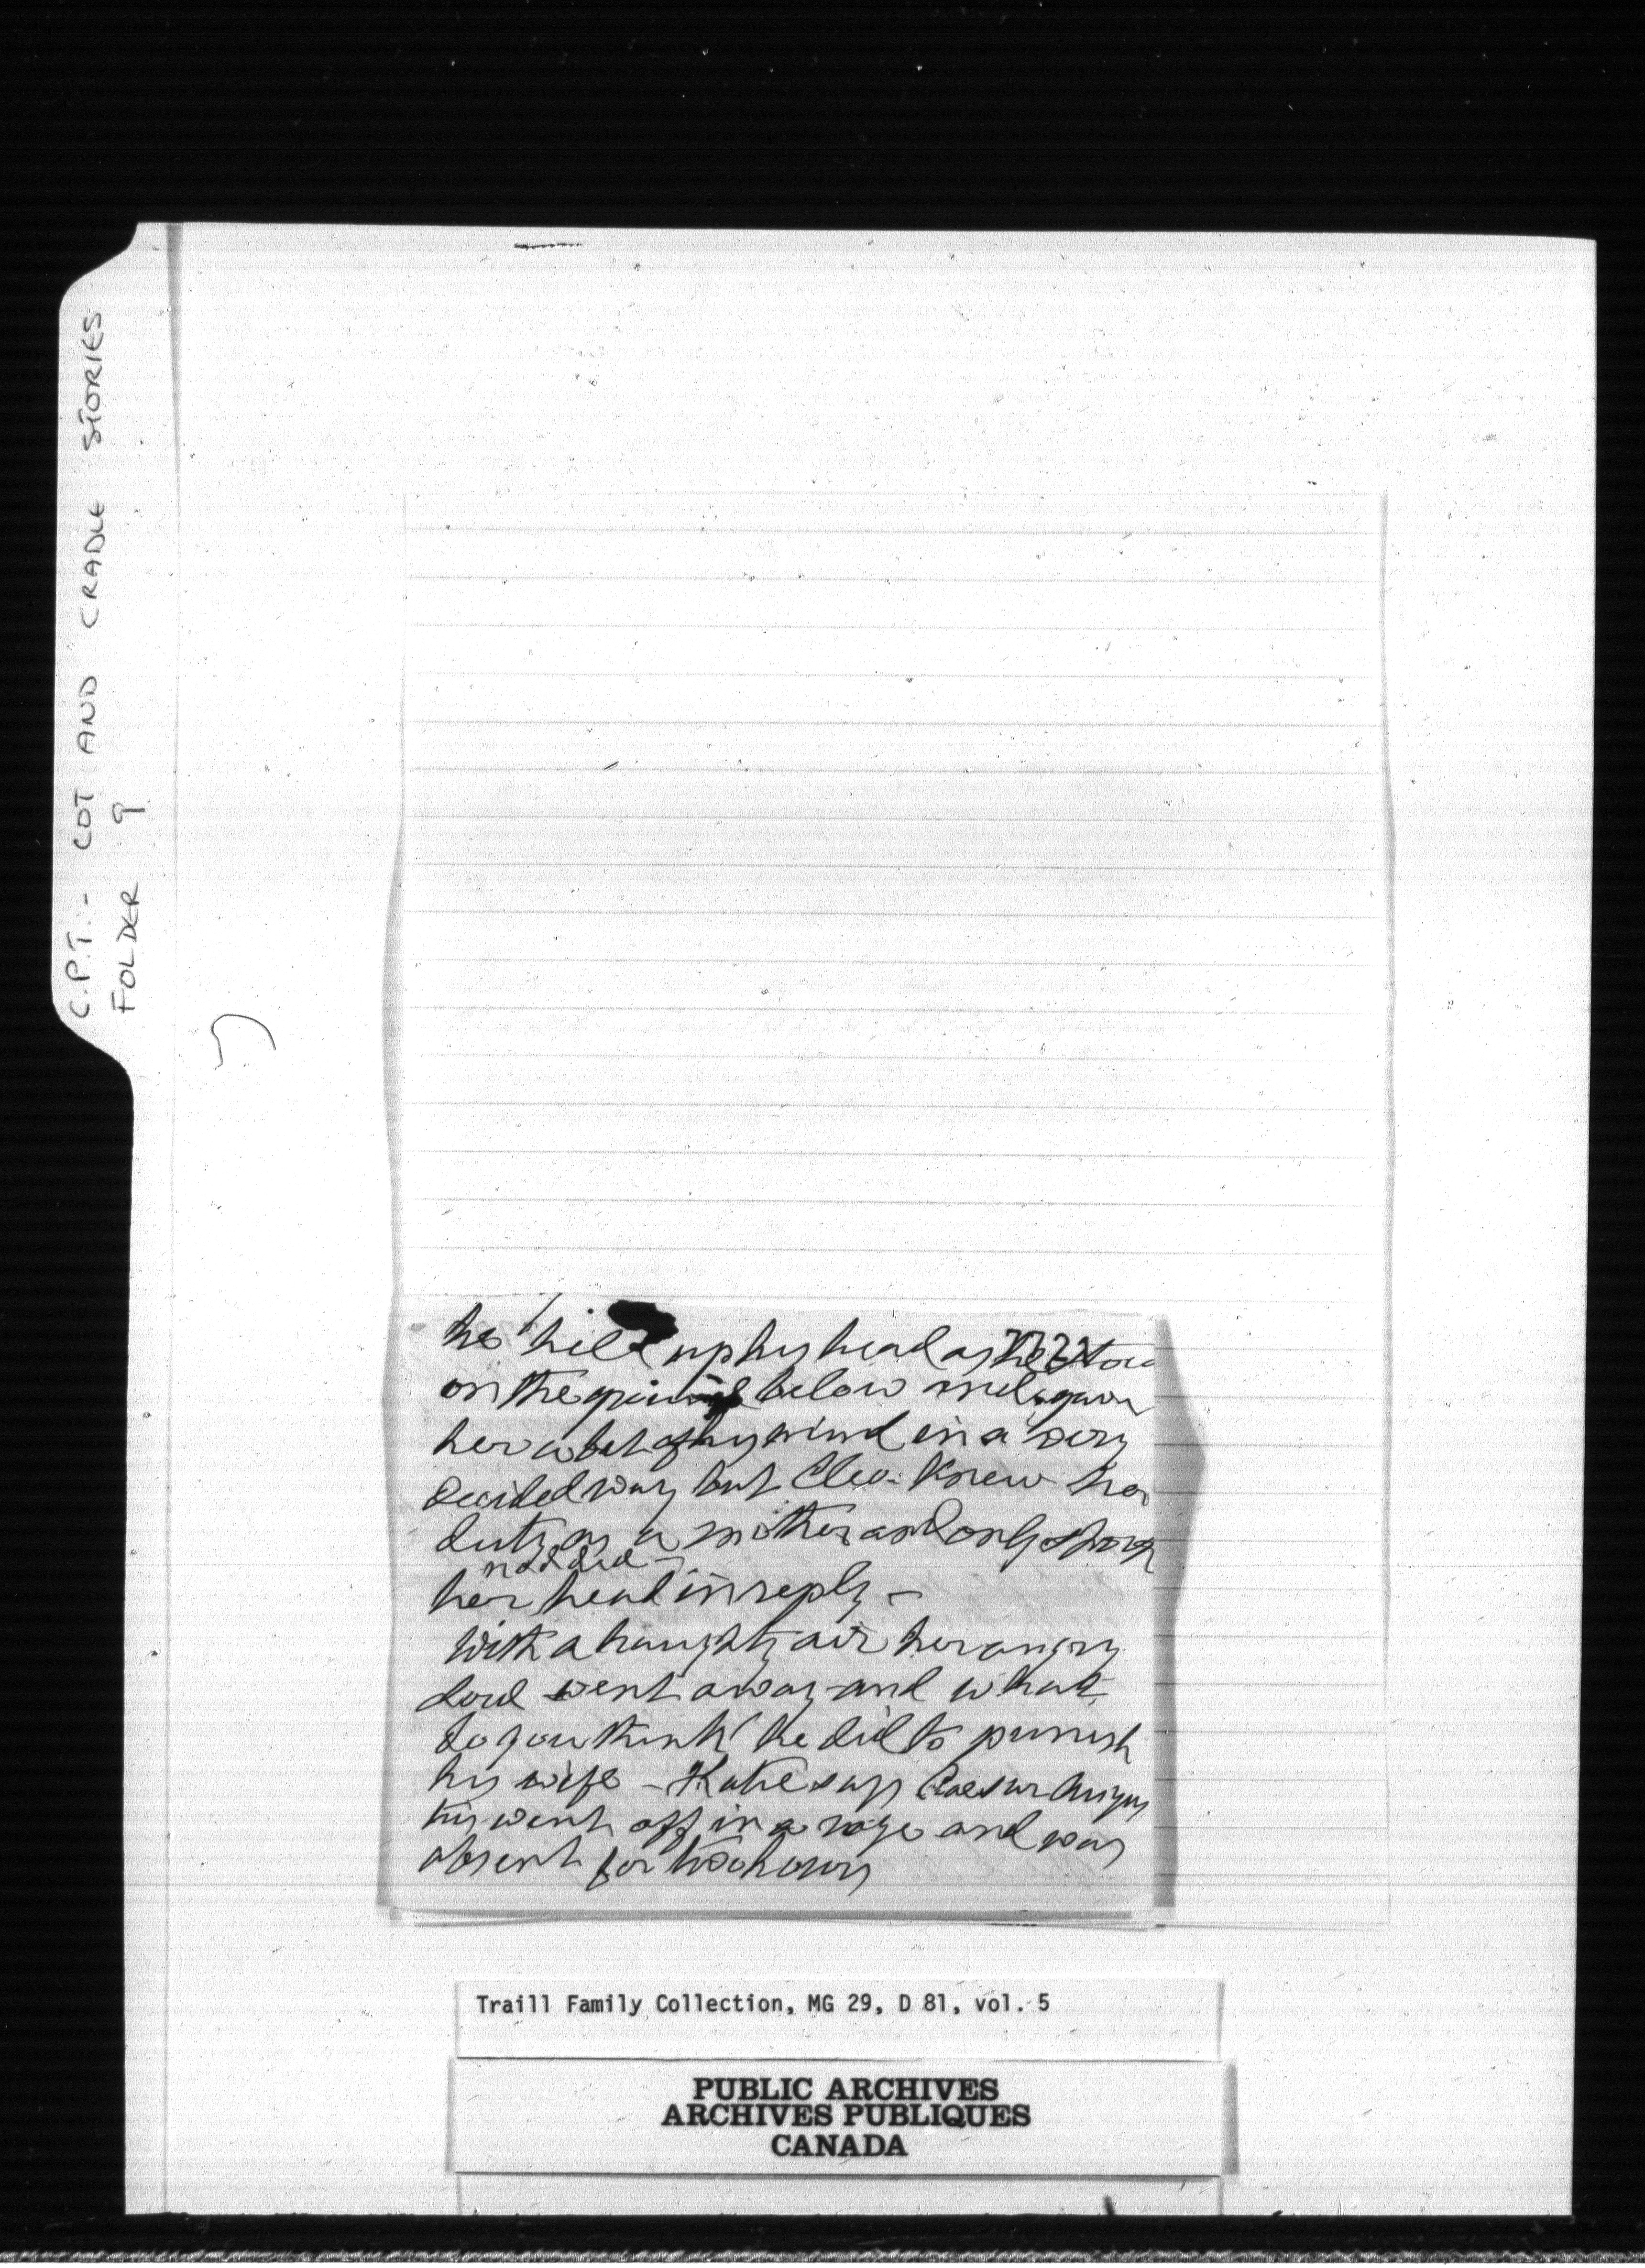 C.P.T. - COT AND CRADLE STORIES
FOLDER 9
he held up his head as he stood
on the ground below and gave
her a bit of his mind in a very
decided way but Cleo. knew her
duty as a mother and only shook
nodded
her head in reply -
With a haughty air her angry
lord went away and what
do you think he did to punish
his wife - Katie says Caesar Augus
tus went off in a rage and was
absent for two hours
Traill Family Collection, MG 29, D 81, vol. 5
PUBLIC ARCHIVES
ARCHIVES PUBLIQUES
CANADA